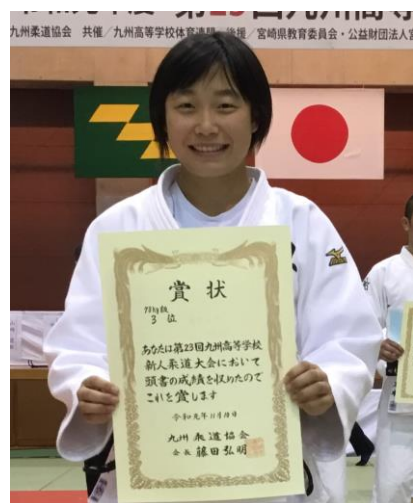 第23回九州高等
九州柔道協会 共催/九州高等学校体育連盟 後援/宮崎県教育委員会・公益財団法人宮
賞状
78kg級
3位
あなたは第23回九州高等学校
新人柔道大会において
頭書の成績を収めたので
これを賞します
九州柔道協会
会長 藤田弘明